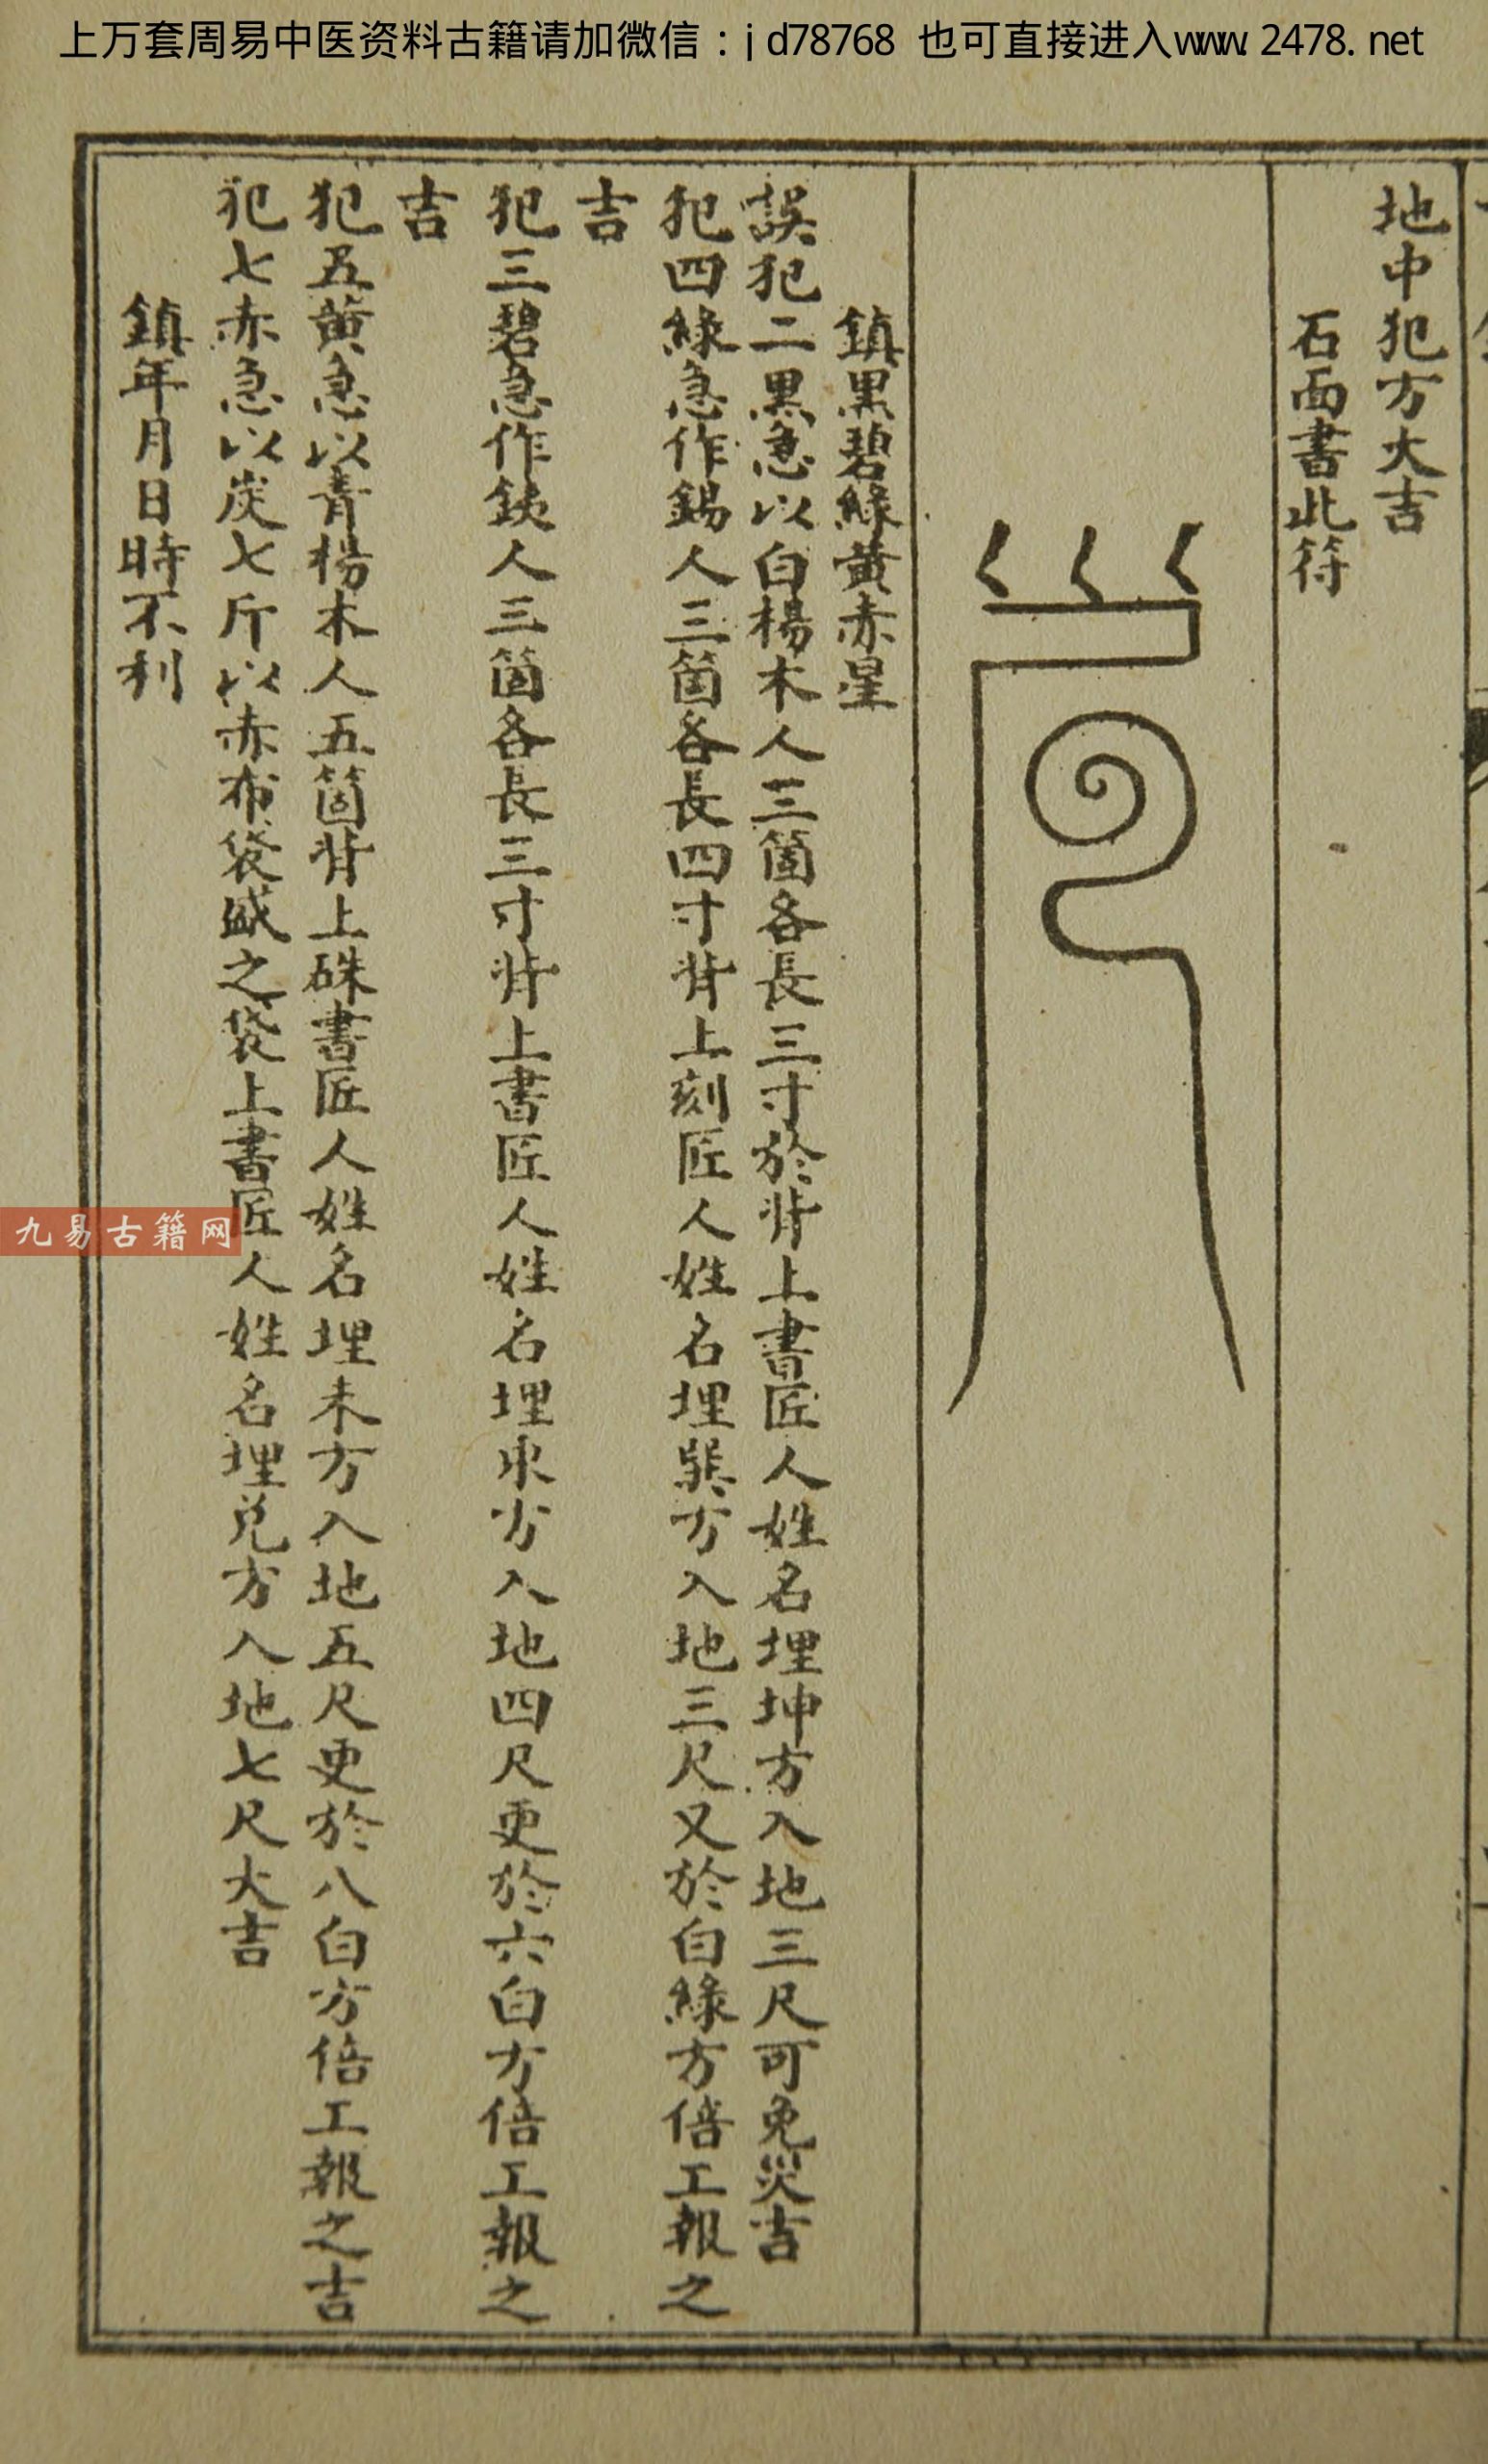 上万套周易中医资料古籍请加微信：jd78768 也可直接进入www.2478.net
地中犯方大吉
石面書此符
鎮黑碧綠黄赤星
誤犯二黑急以白楊木人三箇各長三寸於背上書匠人姓名埋坤方入地三尺可免災吉
犯四綠急作錫人三箇各長四寸背上刻匠人姓名埋巽方入地三尺又於白綠方倍工報之
吉
犯三碧急作鉄人三箇各長三寸背上書匠人姓名埋東方入地四尺更於六白方倍工報之
吉
犯五黄急以青楊木人五箇背上硃書匠人姓名埋未方入地五尺更於八白方倍工報之吉
犯七赤急以炭七斤以赤布袋盛之袋上書匠人姓名埋兑方入地七尺大吉
鎮年月日時不利
九易古籍网